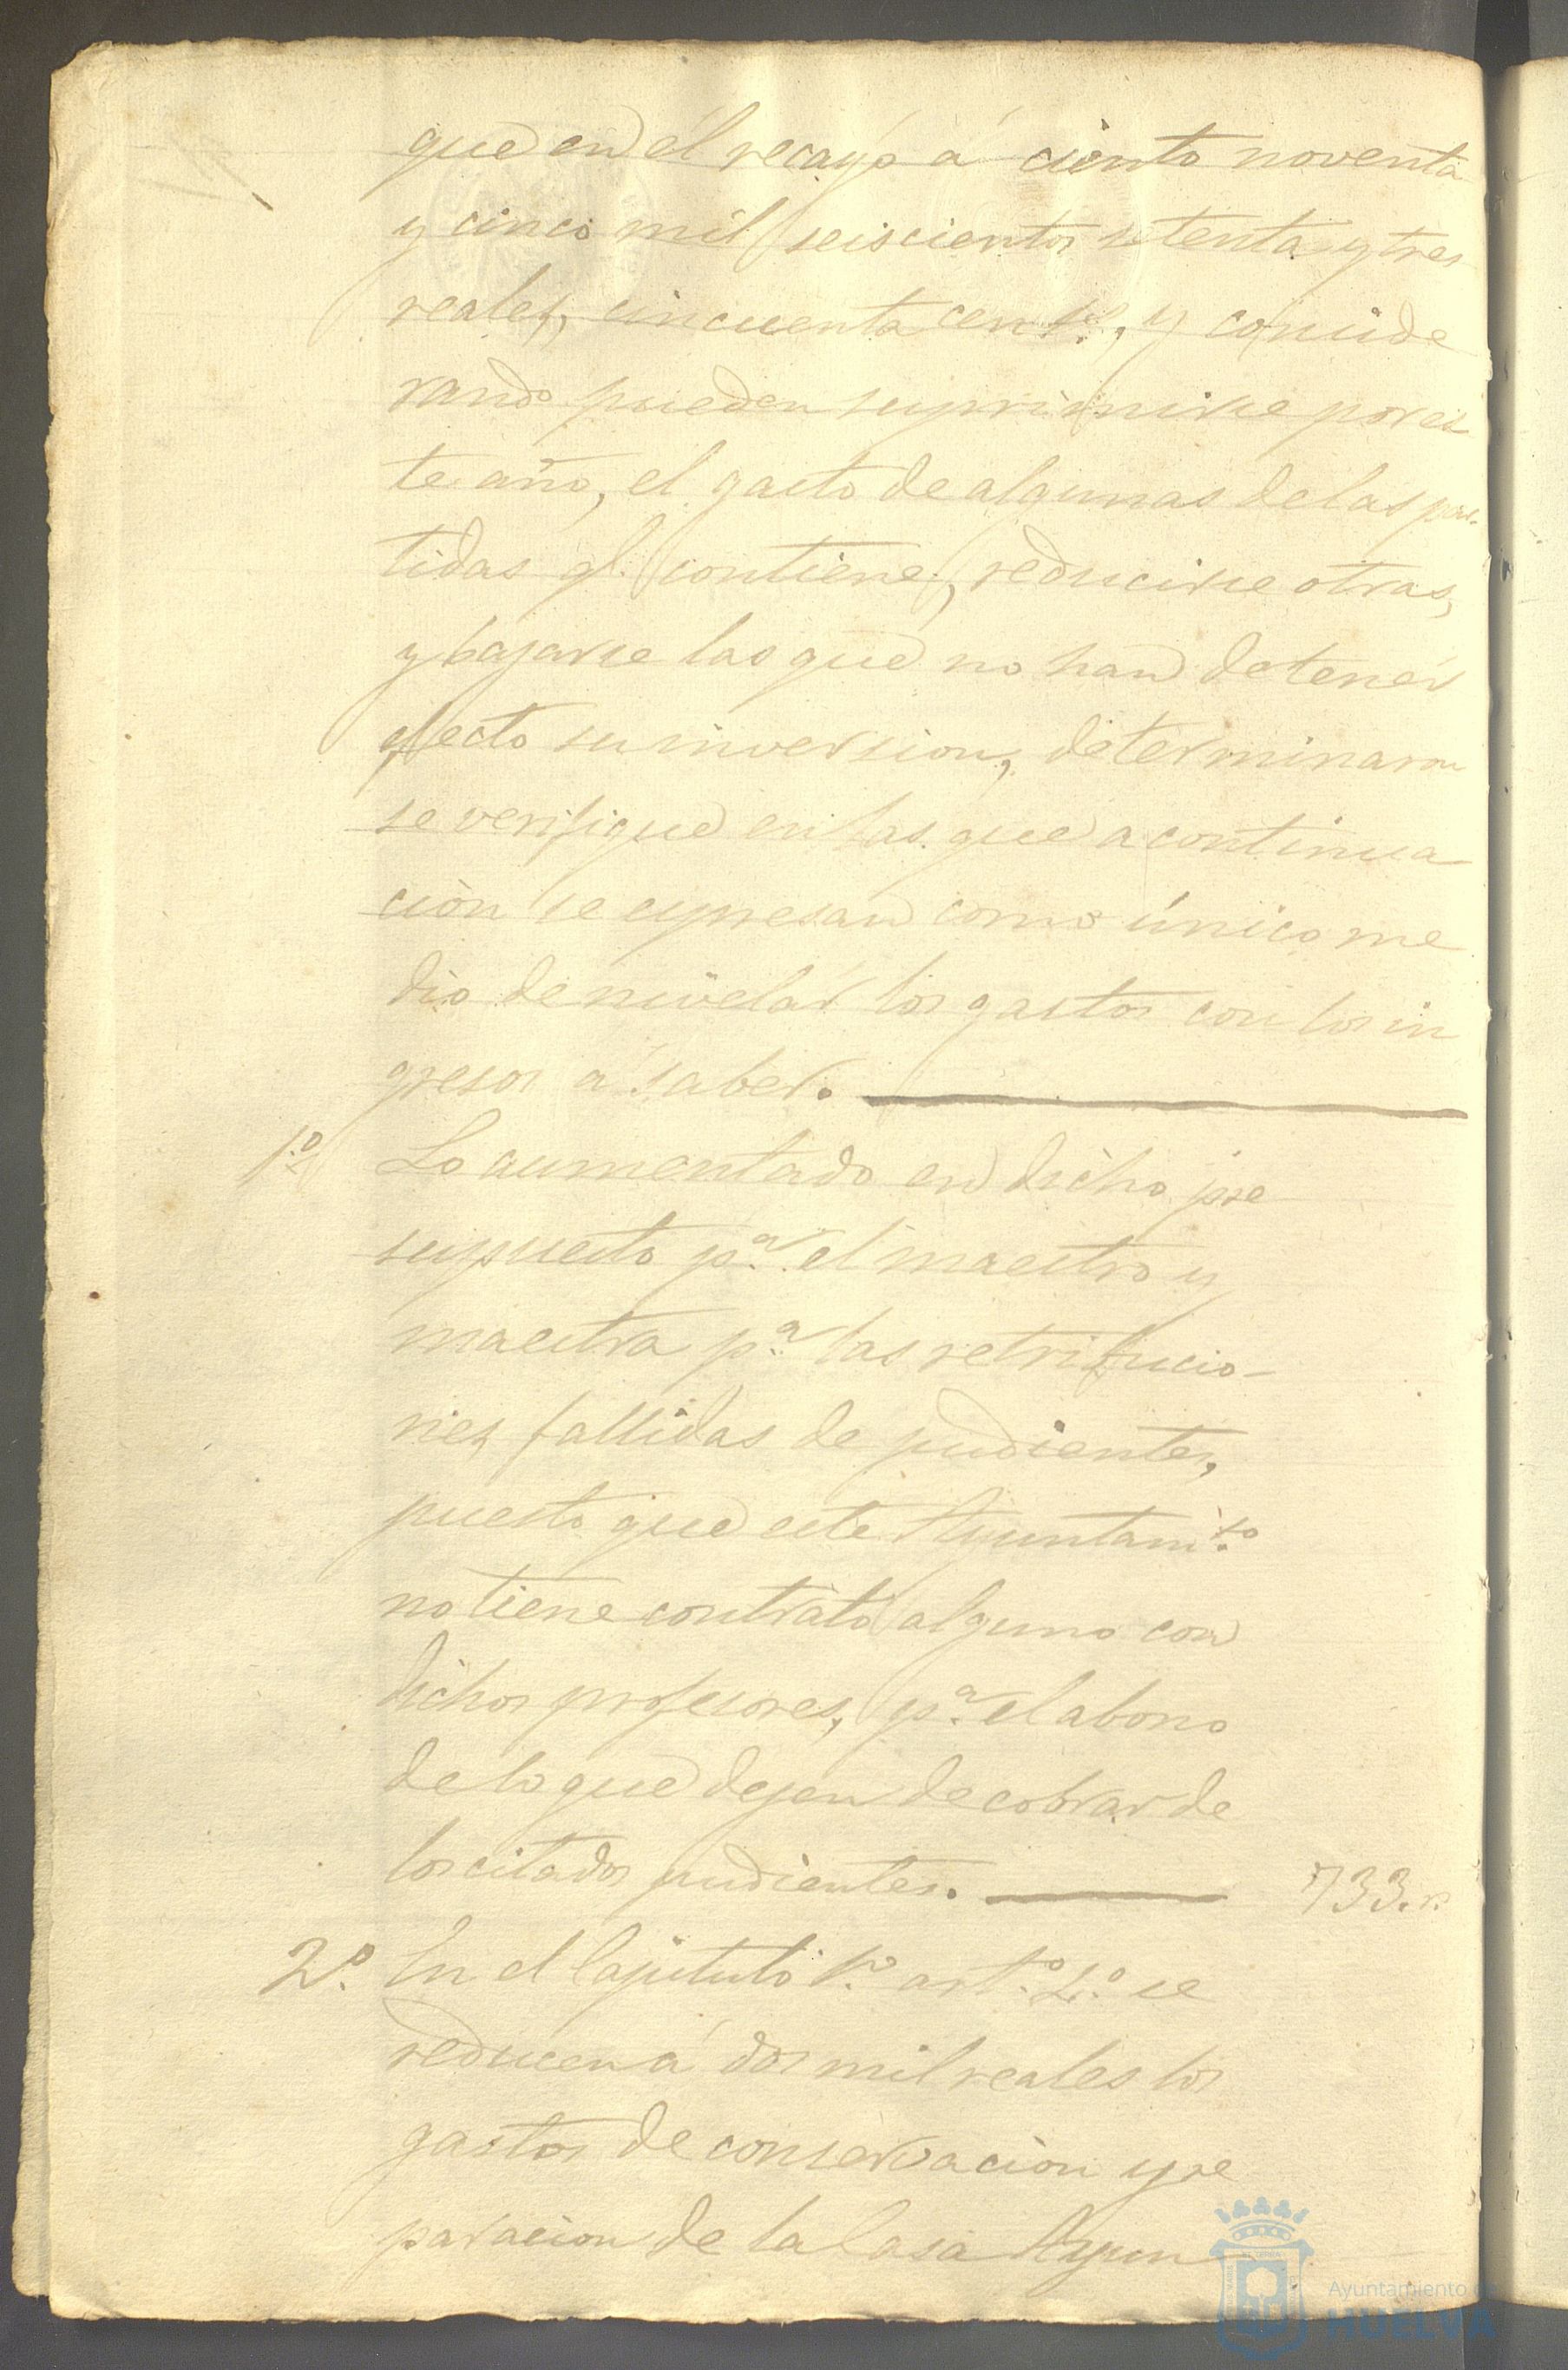 que en él recayó á ciento noventa
y cinco mil seiscientos setenta y tres
reales, cincuenta cent.s, y conside
rando pueden suprimirse por es
te año, el gasto de algunas de las par-
tidas q.e contiene, reducirse otras,
y bajarse las que no han de tener
efecto su inversion, determinaron
se verifique en las que a continua
ción se expresan como único me
dio de nivelar los gastos con los in
gresos a saber.
1.º Lo aumentado en dicho pre
supuesto p.a el maestro y
maestra p.a las retribucio-
nes fallidas de pudientes,
puesto que este Ayuntami.to
no tiene contrato alguno con
dichos profesores, p.a el abono
de lo que dejen de cobrar de
los citados pudientes. 733. r.
2.º En el Capitulo 1.º art.º 2.º se
reducen á dos mil reales los
gastos de conservacion y re
paracion de la Casa Ayun
Ayuntamiento de
HUELVA